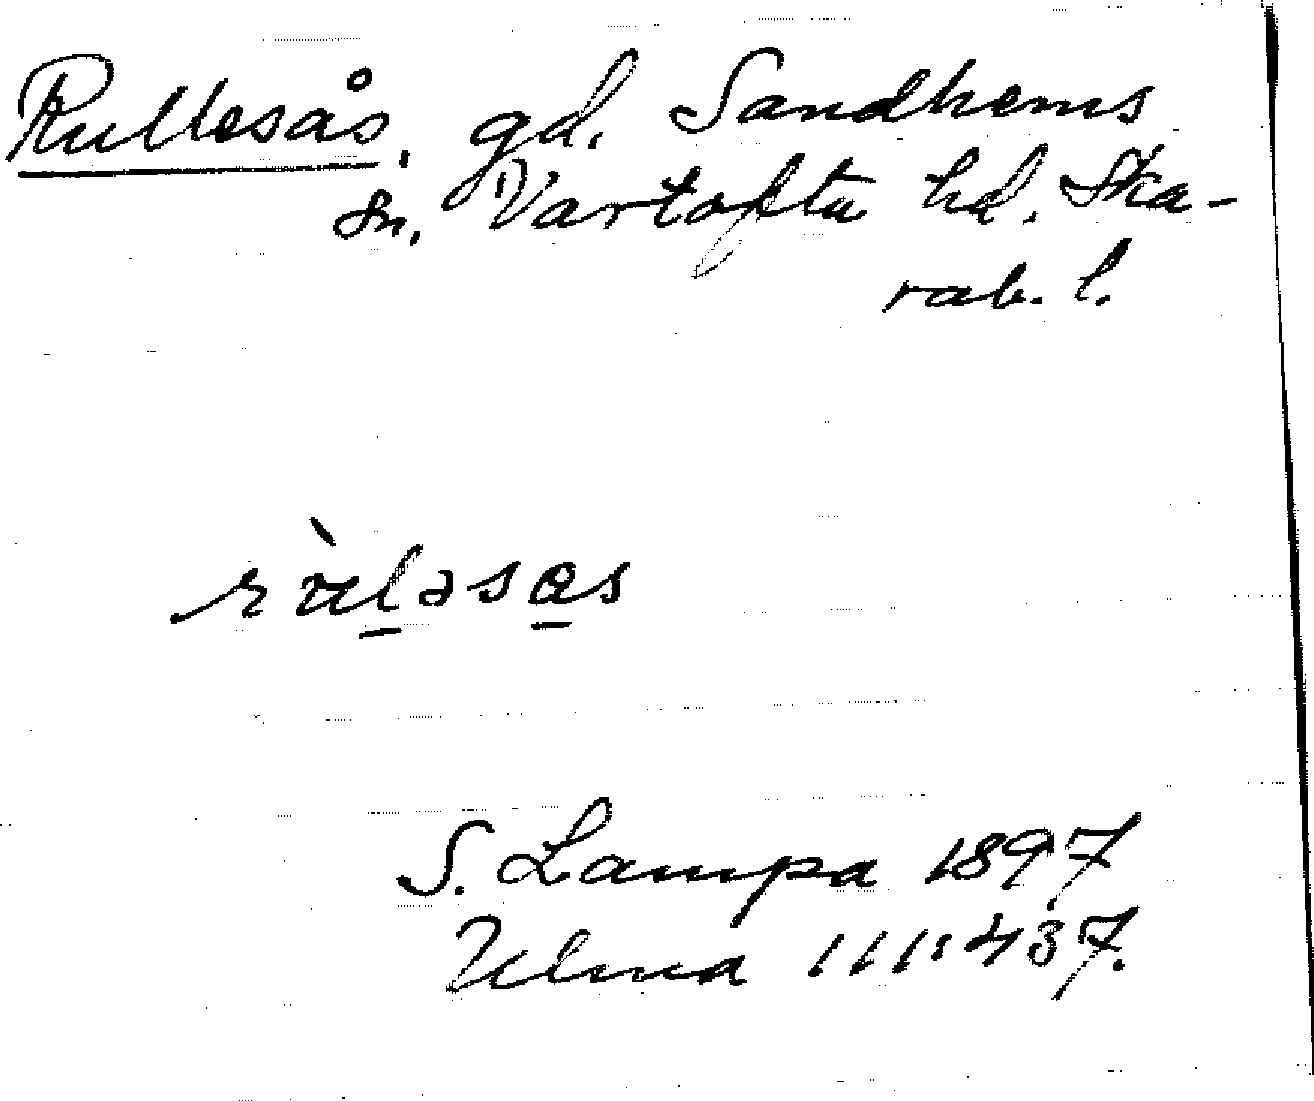 Rullesås, gd. Sandhems
sn. Vartofta hd. Ska-
rab. l.
S. Lampa 1897
Ulma 111:437.